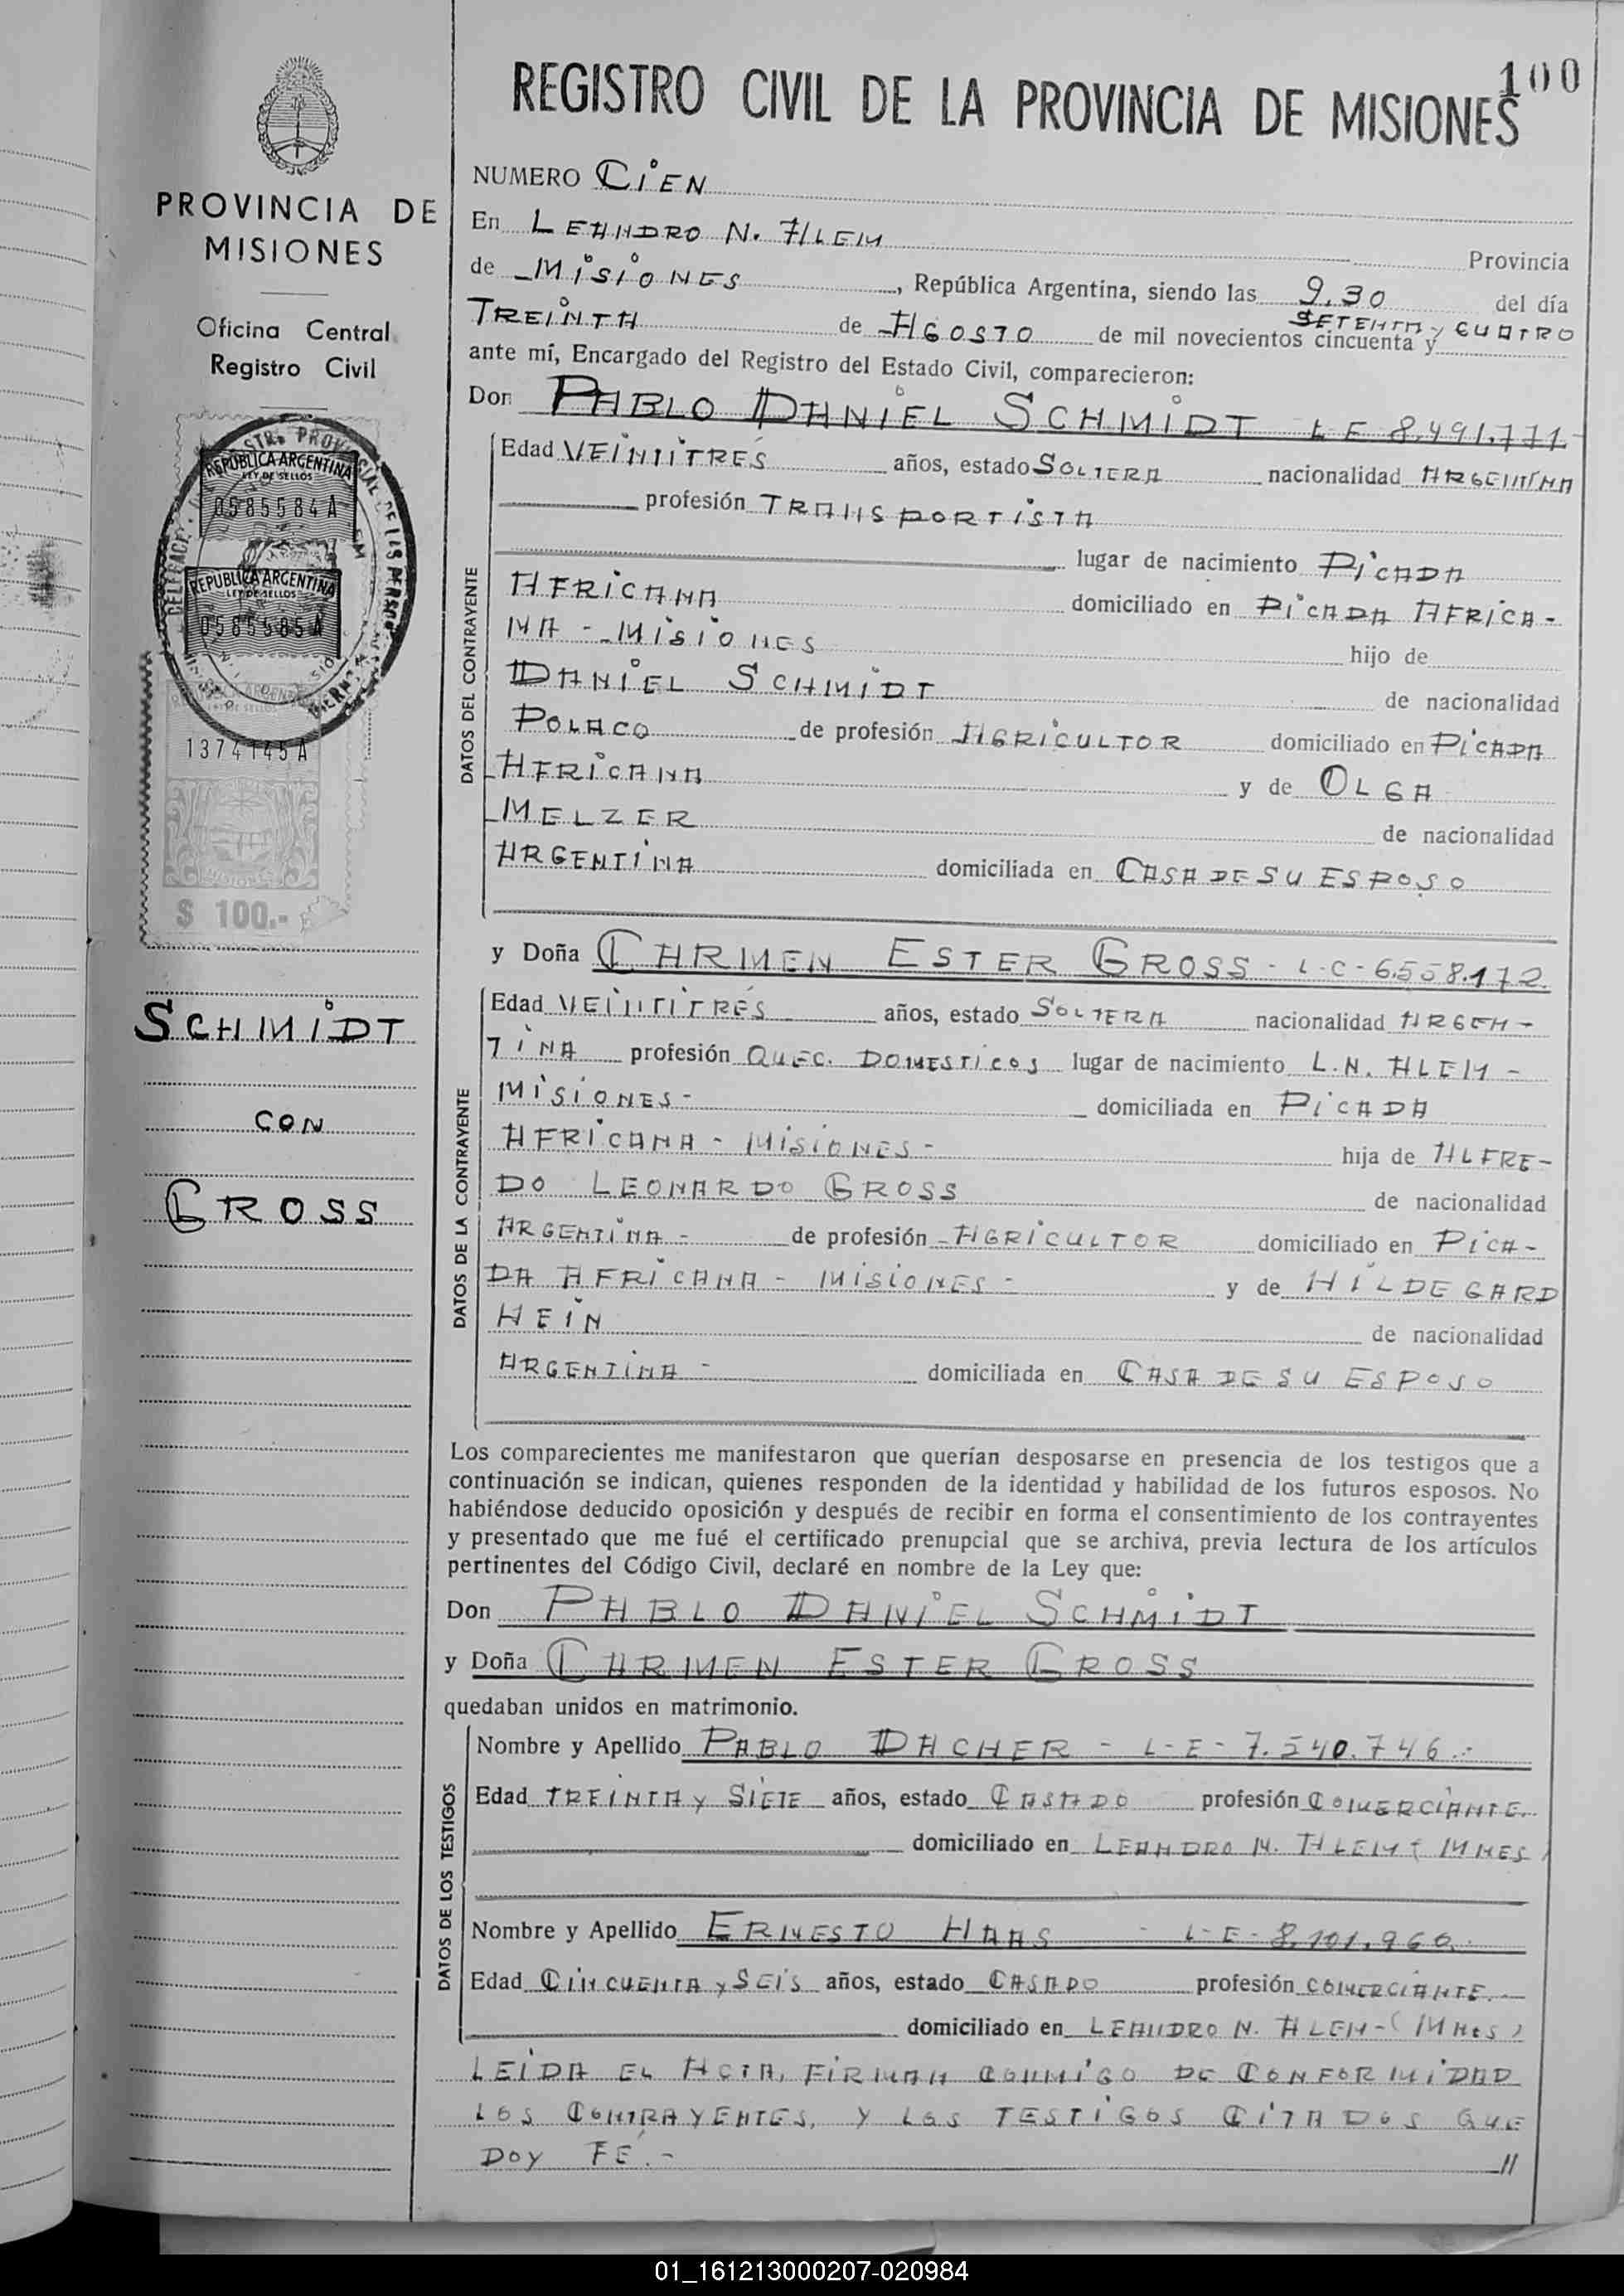 100
REGISTRO CIVIL DE LA PROVINCIA DE MISIONES
PROVINCIA DE
MISIONES
Oficina Central
Registro Civil
REPUBLICA ARGENTINA
LEY DE SELLOS
0585584 A
REPUBLICA ARGENTINA
LEY DE SELLOS
0585585 A
1374145 A
$ 100.-
SCHMIDT
CON
GROSS
NUMERO CIEN
En LEANDRO N. ALEM Provincia
de MISIONES, República Argentina, siendo las 9,30 del día
TREINTA de AGOSTO de mil novecientos cincuenta y SETENTA y CUATRO
ante mí, Encargado del Registro del Estado Civil, comparecieron:
Don PABLO DANIEL SCHMIDT LE 8.491.771
DATOS DEL CONTRAYENTE
Edad VEINTITRÉS años, estado SOLTERA nacionalidad ARGENTINA
profesión TRANSPORTISTA
lugar de nacimiento PICADA
AFRICANA domiciliado en PICADA AFRICA-
NA - MISIONES hijo de
DANIEL SCHMIDT de nacionalidad
POLACO de profesión AGRICULTOR domiciliado en PICADA
AFRICANA y de OLGA
MELZER de nacionalidad
ARGENTINA domiciliada en CASA DE SU ESPOSO
y Doña CARMEN ESTER GROSS - L-C-6.558.172.
DATOS DE LA CONTRAYENTE
Edad VEINTITRÉS años, estado SOLTERA nacionalidad ARGEN-
TINA profesión QUEC. DOMESTICOS lugar de nacimiento L.N. ALEM -
MISIONES- domiciliada en PICADA
AFRICANA - MISIONES - hija de ALFRE-
DO LEONARDO GROSS de nacionalidad
ARGENTINA - de profesión AGRICULTOR domiciliado en PICA-
DA AFRICANA - MISIONES - y de HILDEGARD
HEIN de nacionalidad
ARGENTINA - domiciliada en CASA DE SU ESPOSO
Los comparecientes me manifestaron que querían desposarse en presencia de los testigos que a
continuación se indican, quienes responden de la identidad y habilidad de los futuros esposos. No
habiéndose deducido oposición y después de recibir en forma el consentimiento de los contrayentes
y presentado que me fué el certificado prenupcial que se archiva, previa lectura de los artículos
pertinentes del Código Civil, declaré en nombre de la Ley que:
Don PABLO DANIEL SCHMIDT
y Doña CARMEN ESTER GROSS
quedaban unidos en matrimonio.
DATOS DE LOS TESTIGOS
Nombre y Apellido PABLO DACHER - L-E-7.540.746.-
Edad TREINTA y SIETE años, estado CASADO profesión COMERCIANTE.
domiciliado en LEANDRO N. ALEM (MNES)
Nombre y Apellido ERNESTO HAAS - L-E-8.101.960.-
Edad CINCUENTA y SEIS años, estado CASADO profesión COMERCIANTE.
domiciliado en LEANDRO N. ALEM-(MNES)
LEIDA EL ACTA, FIRMAN CONMIGO DE CONFORMIDAD
LOS CONTRAYENTES, Y LOS TESTIGOS CITADOS QUE
DOY FE.- //
01_161213000207-020984